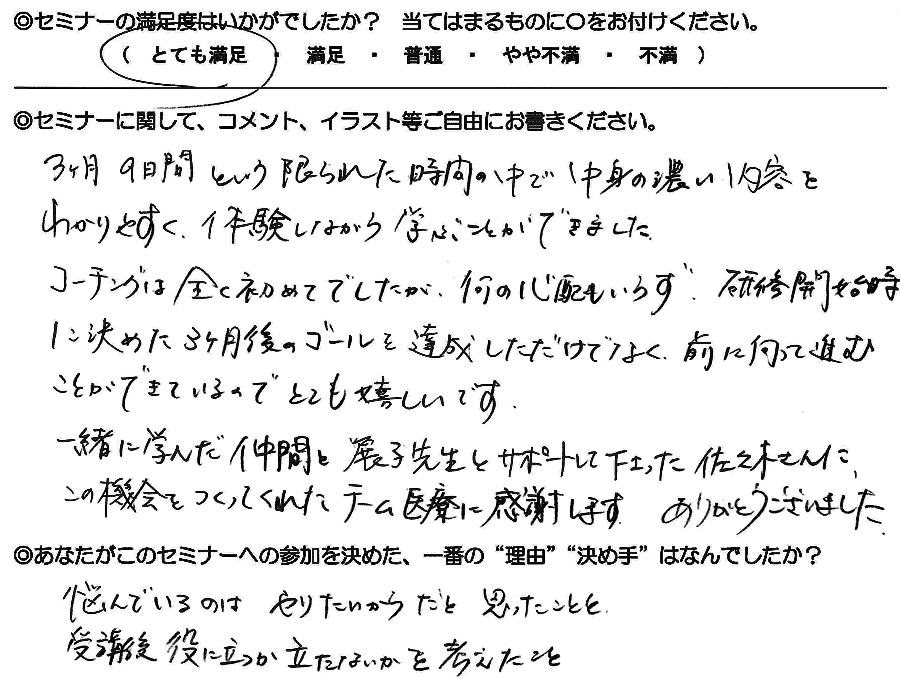 ◎セミナーの満足度はいかがでしたか？　当てはまるものに〇をお付けください。
（　とても満足　・　満足　・　普通　・　やや不満　・　不満　）
◎セミナーに関して、コメント、イラスト等ご自由にお書きください。
3ヶ月 9日間 という 限られた時間の中で 中身の濃い内容を
わかりやすく、体験しながら 学ぶことができました。
コーチングは全く初めてでしたが、何の心配もいらず、研修開始時
に決めた 3ヶ月後のゴールを達成しただけでなく、前に向って進む
ことができているので とても嬉しいです。
一緒に学んだ仲間と 展子先生とサポートして下さった佐々木さんに、
この機会をつくってくれたチーム医療に感謝します。 ありがとうございました。
◎あなたがこのセミナーへの参加を決めた、一番の“理由”“決め手”はなんでしたか？
悩んでいるのは やりたいからだと 思ったことと、
受講後 役に立つか立たないかを考えたこと